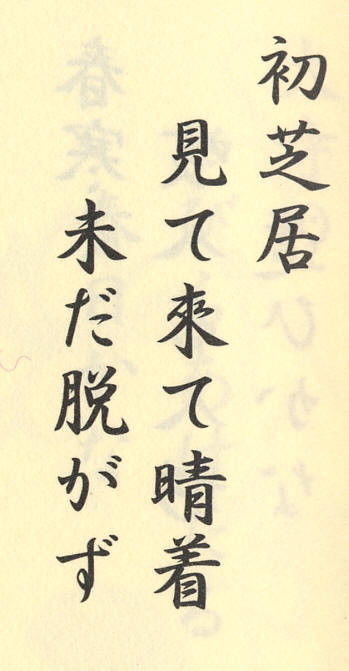 初芝居
見て來て晴着
未だ脱がず